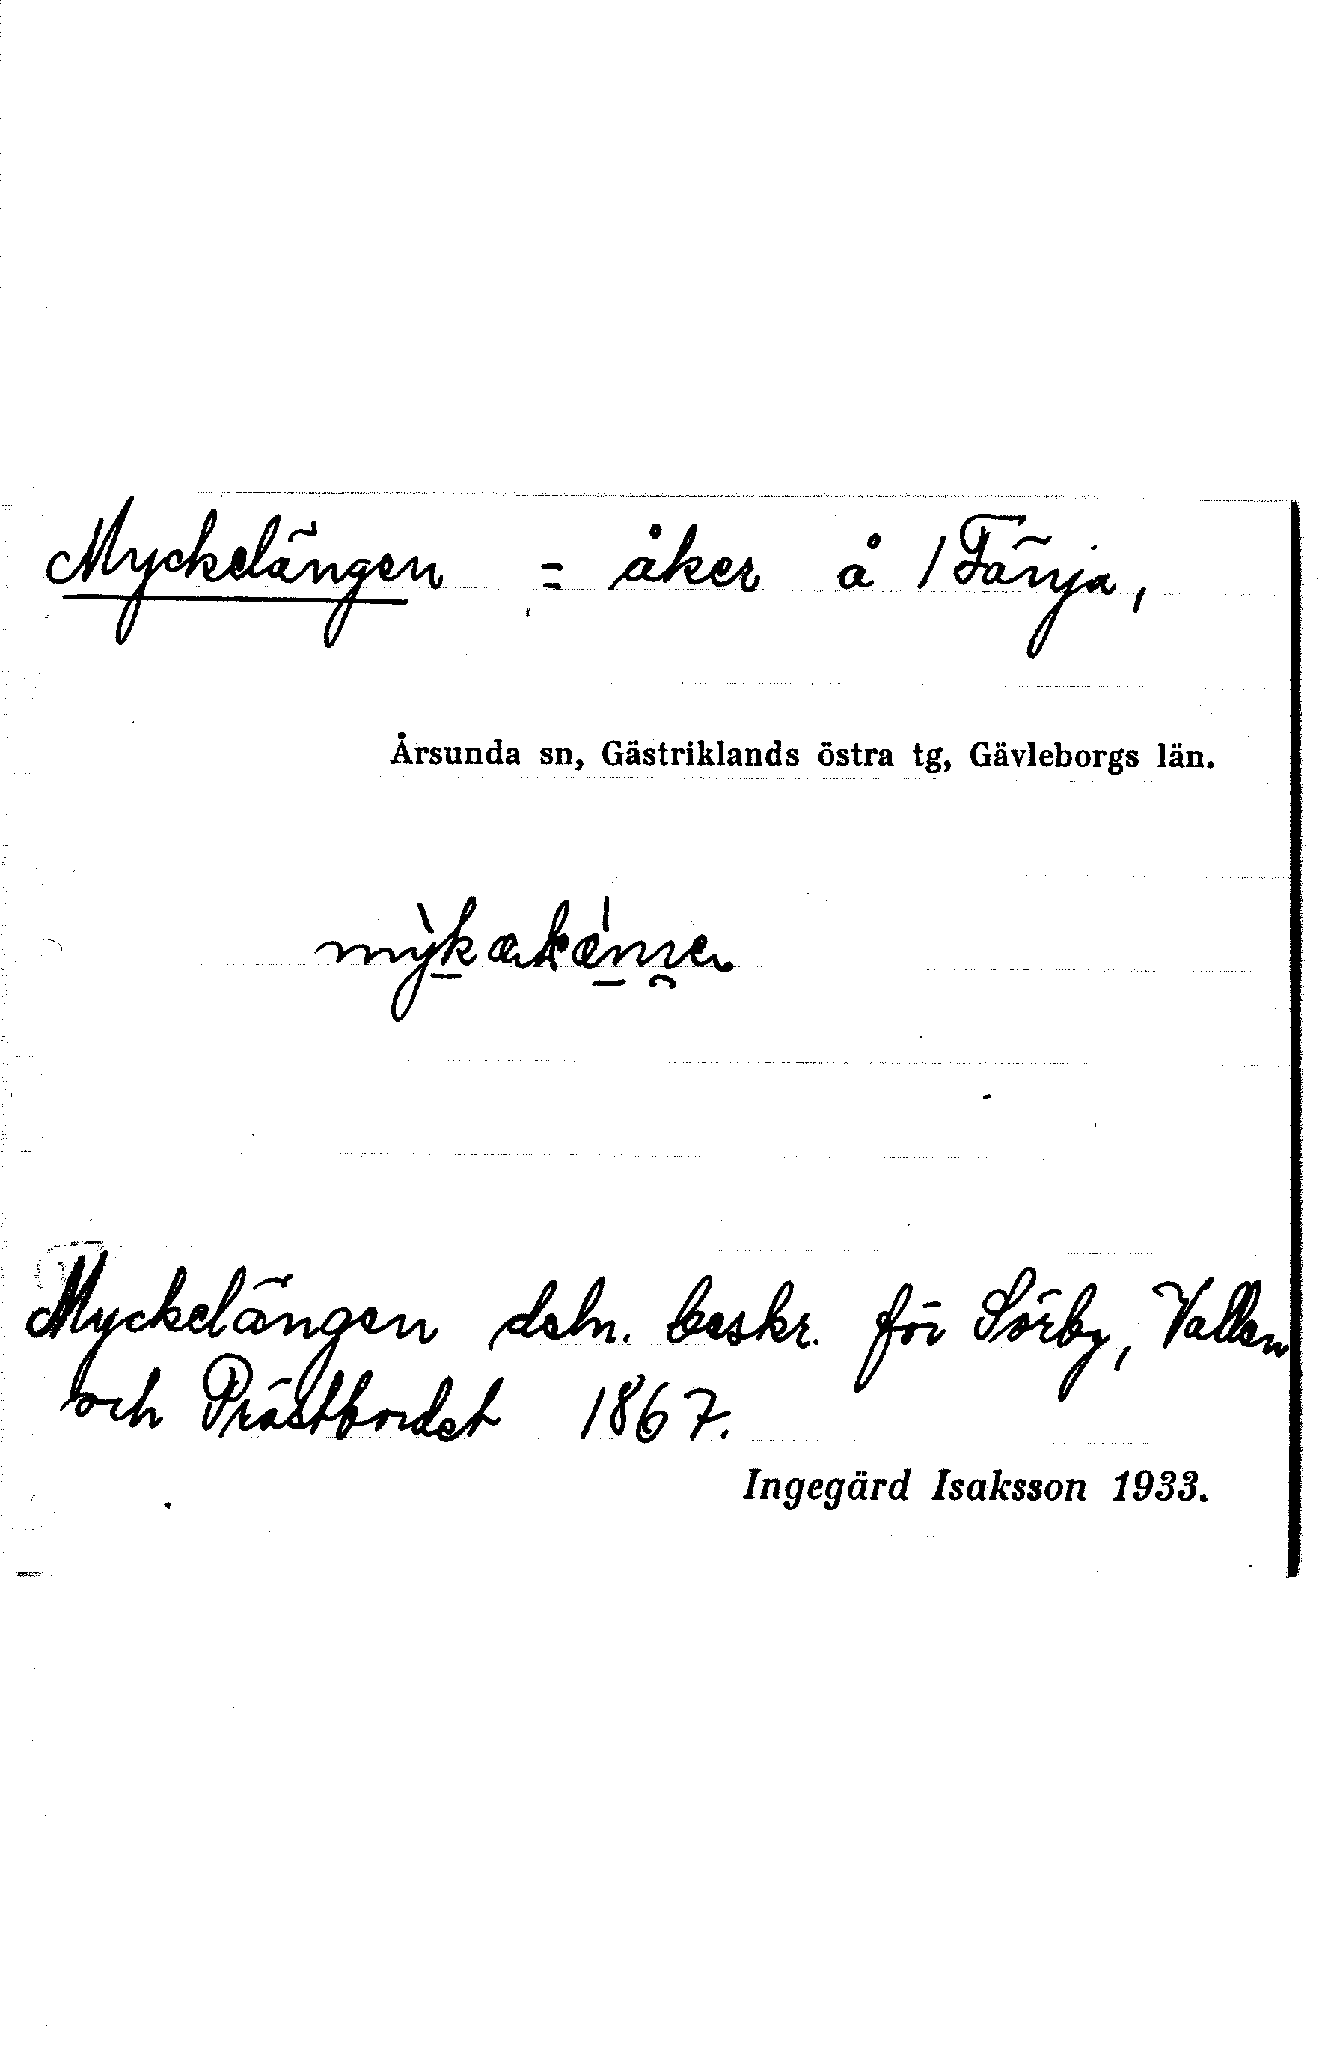 Myckelängen = åker å 1 Fänja,
Årsunda sn, Gästriklands östra tg, Gävleborgs län.
Myckelängen deln. beskr. för Sörby, Vallen
och Prästbordet 1867.
Ingegärd Isaksson 1933.